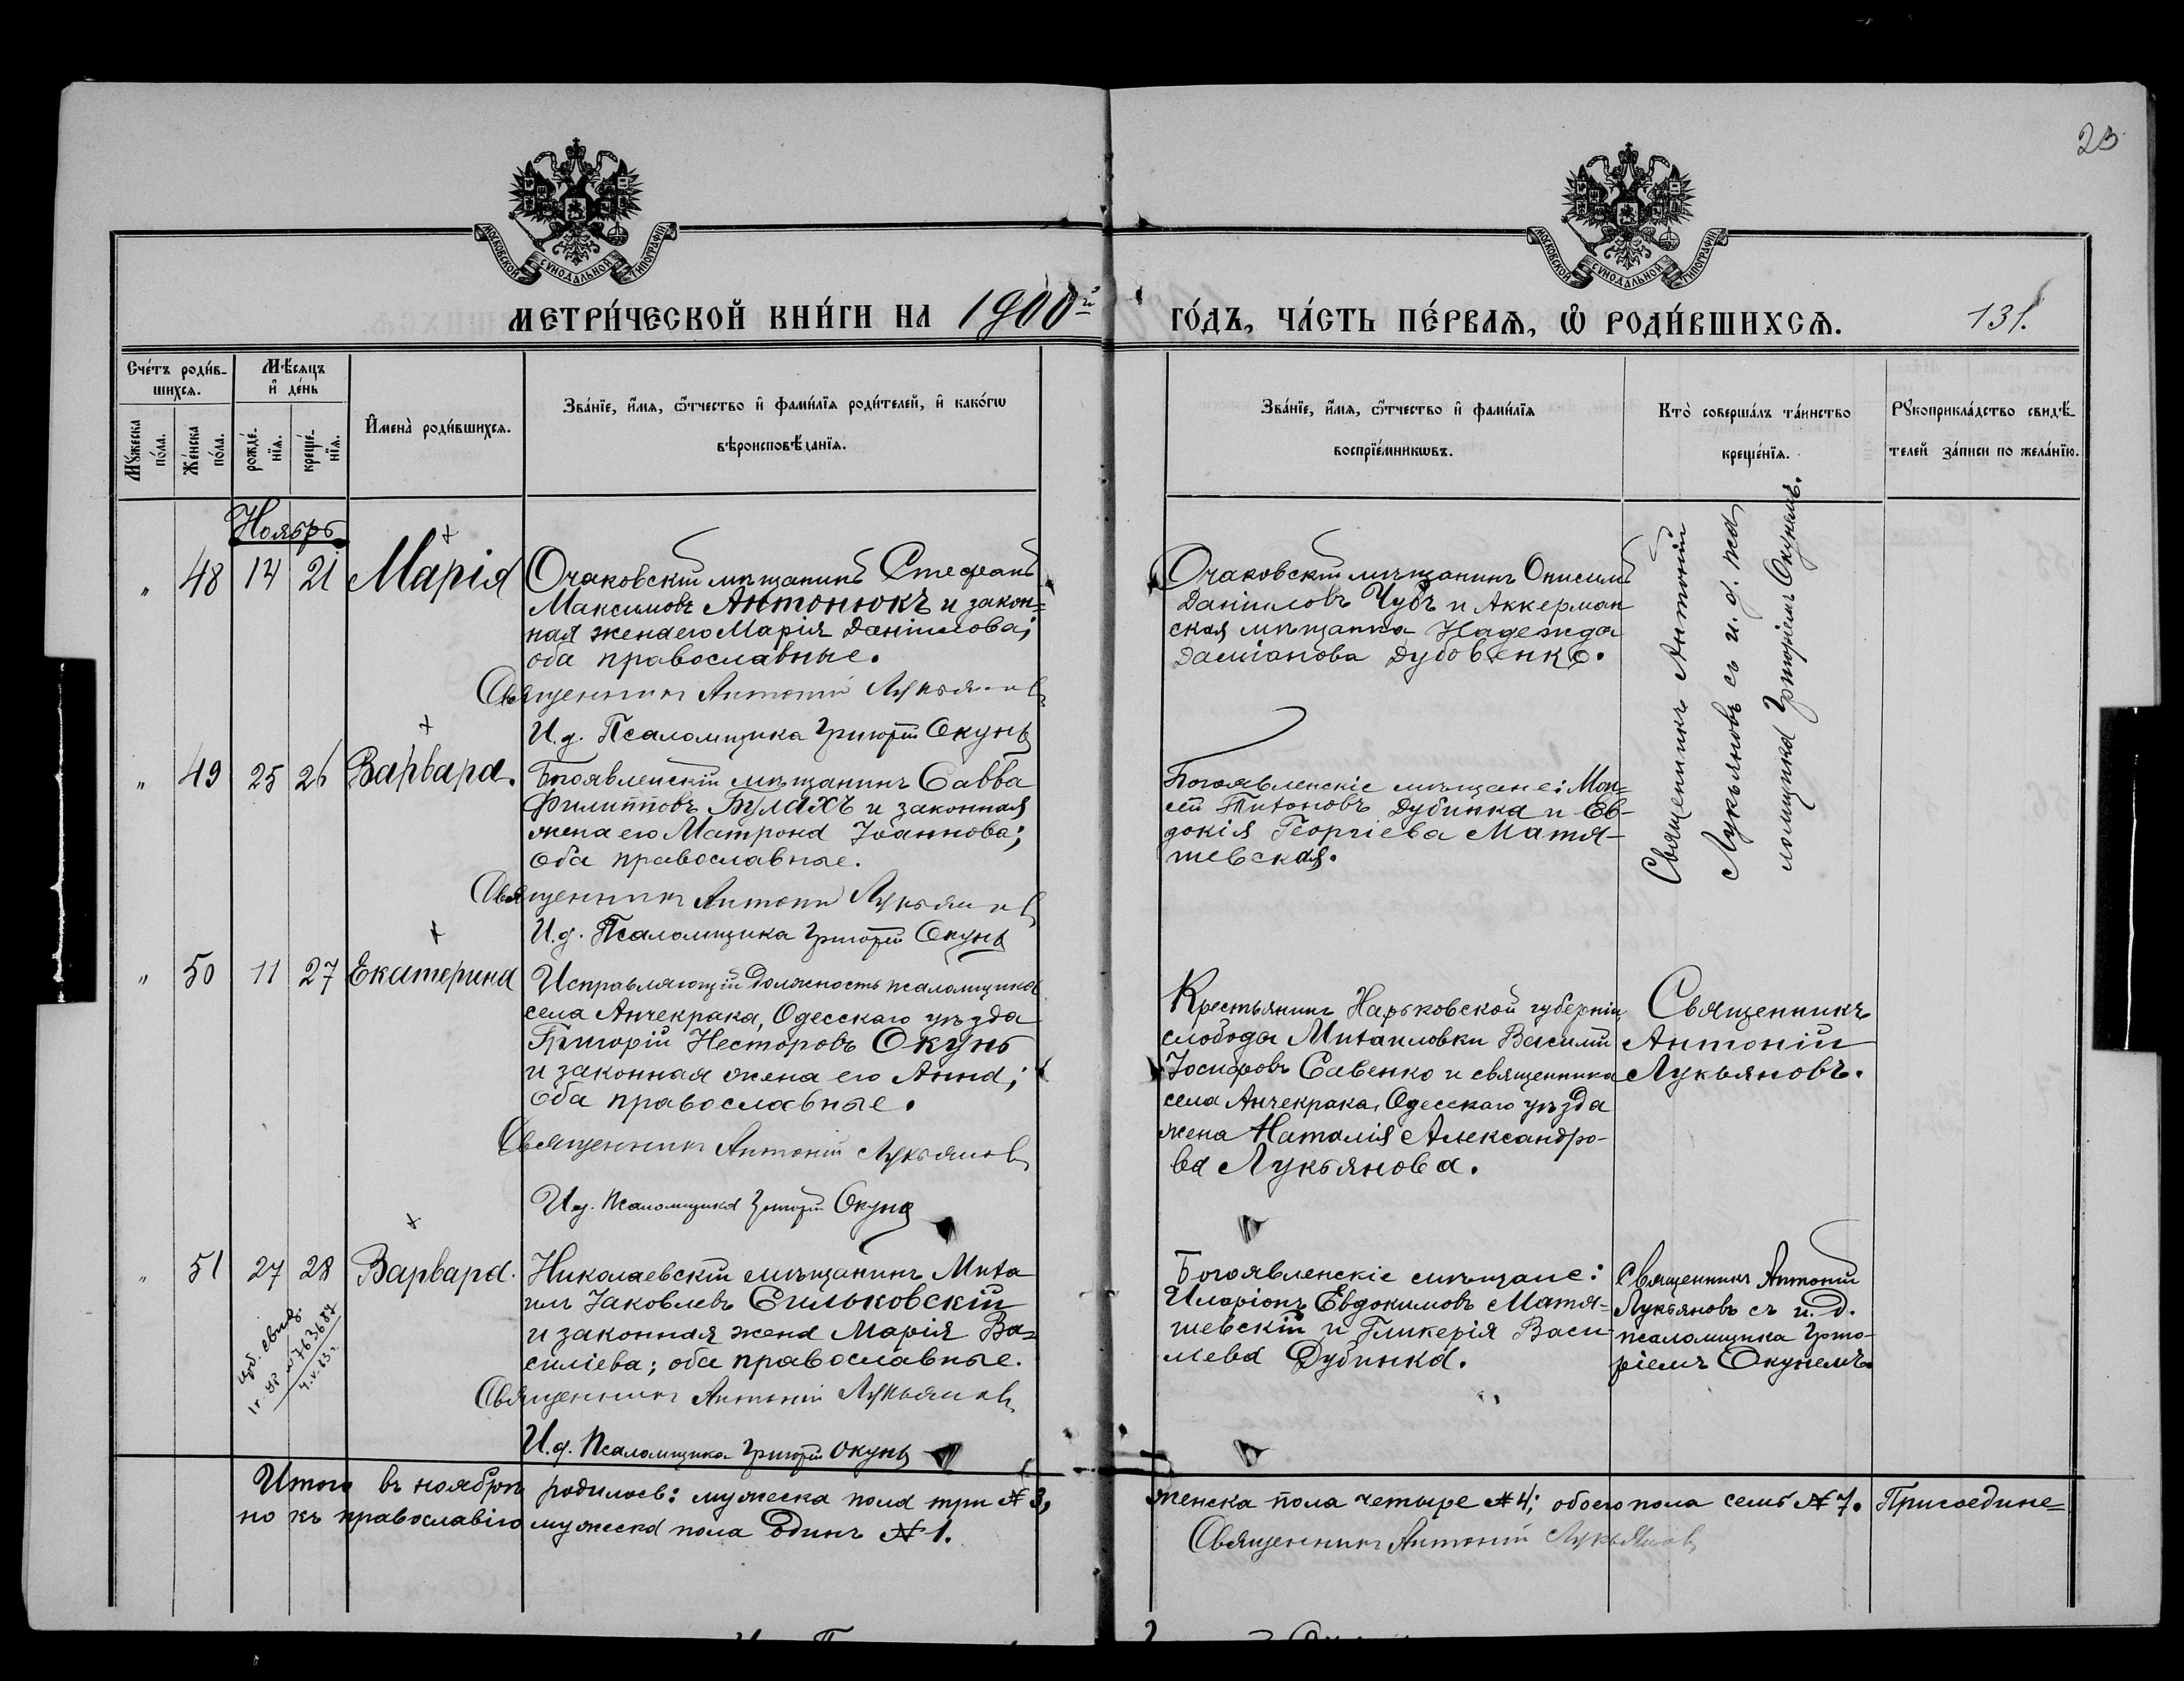 23
МОСКОВСКОЙ СУНОДАЛЬНОЙ ТИПОГРАФІИ
МОСКОВСКОЙ СУНОДАЛЬНОЙ ТИПОГРАФІИ
МЕТРИ́ЧЕСКОЙ КНИ́ГИ НА 1900й
ГО́ДЪ, ЧА́СТЬ ПЕ́РВАѦ, Ѽ РОДИ́ВШИХСѦ.
131.
Сче́тъ роди́в-
шихсѧ.
Мѣ́сѧцъ
и҆ де́нь
Мꙋ́жеска
по́ла.
Же́нска
по́ла.
рожде́-
нїѧ.
креще́-
нїѧ.
И҆мена̀ роди́вшихсѧ.
Зва́нїе, и҆́мѧ, ѻ҆́тчество и҆ фами́лїѧ роди́телей, и҆ како́гѡ
вѣроисповѣ́данїѧ.
Зва́нїе, и҆́мѧ, ѻ҆́тчество и҆ фами́лїѧ
воспрїе́мникѡвъ.
Кто̀ соверша́лъ та́инство
креще́нїѧ.
Рꙋкоприкла́дство свидѣ́-
телей за́писи по жела́нїю.
Ноябрь
" 48 14 21 Марія
Очаковскій мѣщанинъ Стефанъ
Максимовъ Антонюкъ и закон=
ная жена его Марія Даніилова;
оба православные.
Священникъ Антоній Лукьяновъ
И.д. Псаломщика Григорій Окунь
Очаковскій мѣщанинъ Онисимъ
Даніиловъ Чубъ и Аккерман
ская мѣщанка Надежда
Даміанова Дубовенко.
Священникъ Антоній
Лукьяновъ съ и. д. пса
ломщика Григоріемъ Окунемъ.
" 49 25 26 Варвара.
Богоявленскій мѣщанинъ Савва
Филипповъ Булахъ и законная
жена его Матрона Іоаннова;
оба православные.
Священникъ Антоній Лукьяновъ
И.д. Псаломщика Григорій Окунь
Богоявленскіе мѣщане: Мои=
сей Тихоновъ Дубинка и Ев-
докія Георгіева Матя-
шевская.
" 50 11 27 Екатерина
Исправляющій должность псаломщика
села Анчекрака, Одесскаго уѣзда
Григорій Несторовъ Окунь
и законная жена его Анна;
оба православные.
Священникъ Антоній Лукьяновъ
И.д. Псаломщика Григорій Окунь
Крестьянинъ Харьковской губерніи,
слобода Михаиловки Василій
Іосифовъ Савенко и священника
села Анчекрака, Одесскаго уѣзда
жена Наталія Александро-
ва Лукьянова.
Священникъ
Антоній
Лукьяновъ.
" 51 27 28 Варвара.
Николаевскій мѣщанинъ Миха
илъ Іаковлевъ Сильковскій
и законная жена Марія Ва=
силіева; оба православные.
Священникъ Антоній Лукьяновъ
И.д. Псаломщика Григорій Окунь
Богоявленскіе мѣщане:
Иларіонъ Евдокимовъ Матя-
шевскій и Гликерія Васи-
лева Дубинка.
Священникъ Антоній
Лукьяновъ съ и. д.
псаломщика Григо-
ріемъ Окунемъ.
свид.
№ 763684
Итого въ ноябрѣ родилось: мужеска пола три № 3, женска пола четыре № 4; обоего пола семь № 7. Присоедине=
но къ православію мужеска пола одинъ № 1.
Священникъ Антоній Лукьяновъ